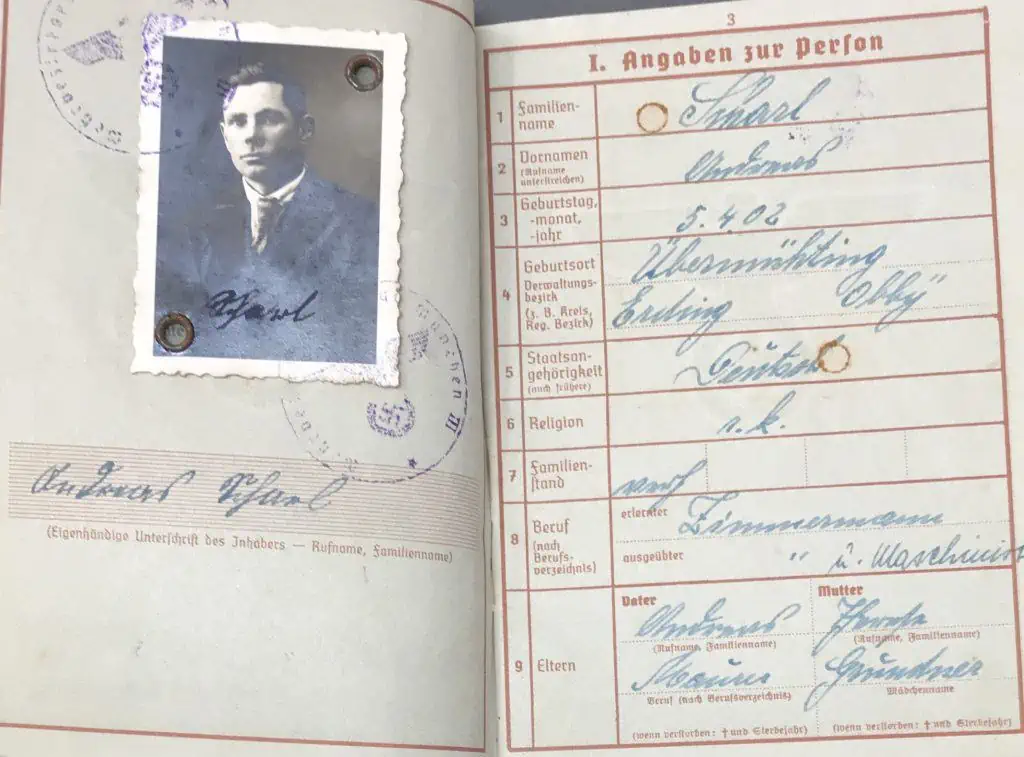 Scharl
München III
Andreas Scharl
(Eigenhändige Unterschrift des Inhabers — Rufname, Familienname)
3
I. Angaben zur Person
1 Familien-
name
Scharl
2 Vornamen
(Rufname
unterstreichen)
Andreas
3 Geburtstag,
-monat,
-jahr
5.4.02
4 Geburtsort
Verwaltungs-
bezirk
(z. B. Kreis,
Reg. Bezirk)
Übermühting
Erding Obby
5 Staatsan-
gehörigkeit
(auch frühere)
Deutsch
6 Religion
r. k.
7 Familien-
stand
verh
8 Beruf
(nach
Berufs-
verzeichnis)
erlernter Zimmermann
ausgeübter " u. Maschinist
9 Eltern
Vater Mutter
Andreas
(Rufname, Familienname) (Rufname, Familienname)
Grundner
Beruf (nach Berufsverzeichnis) Mädchenname
(wenn verstorben: † und Sterbejahr) (wenn verstorben: † und Sterbejahr)